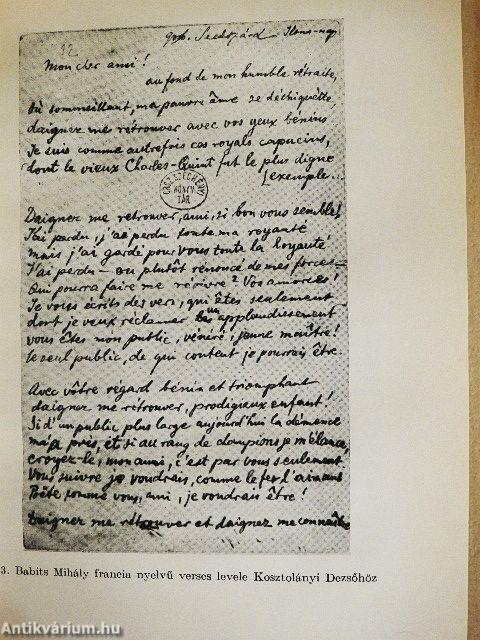 12
906. Szekszárd Ilona-nap
Mon cher ami!
au fond de mon humble rétraite,
Où sommeillant, ma pauvre âme se déchiquette
daignez me rétrouver avec vos yeux bénins
Je suis comme autrefois ces royals capucins,
dont le vieux Charles-Quint fut le plus digne
[exemple...
ORSZ. SZÉCHÉNYI
KÖNYV
TÁR
Daignez me retrouver, ami, si bon vous semble!
J'ai perdu, j'ai perdu toute ma royauté
mais j'ai gardé pour vous toute la loyauté
J'ai perdu — ou plutôt rénoncé de mes forces —
Qui pourra faire me révivre? Vos amorces!
Je vous écrits des vers, qui êtes seulement
dont je veux réclamer un applaudissement
vous êtes mon public, vénéré, jeune maître!
le seul public, de qui content je pourrais être.
Avec vôtre regard bénin et triomphant
daignez me rétrouver, prodigieux enfant!
Si d'un public plus large aujourd'hui la démence
m'a pris, et si au rang de champions je m'élance,
croyez-le, mon ami, c'est par vous seulement.
Vous suivre je voudrais, comme le fer d'aimant
Poëte comme vous, ami, je voudrais être!
Daignez me rétrouver et daignez me connaître
3. Babits Mihály francia nyelvű verses levele Kosztolányi Dezsőhöz
Antikvárium.hu